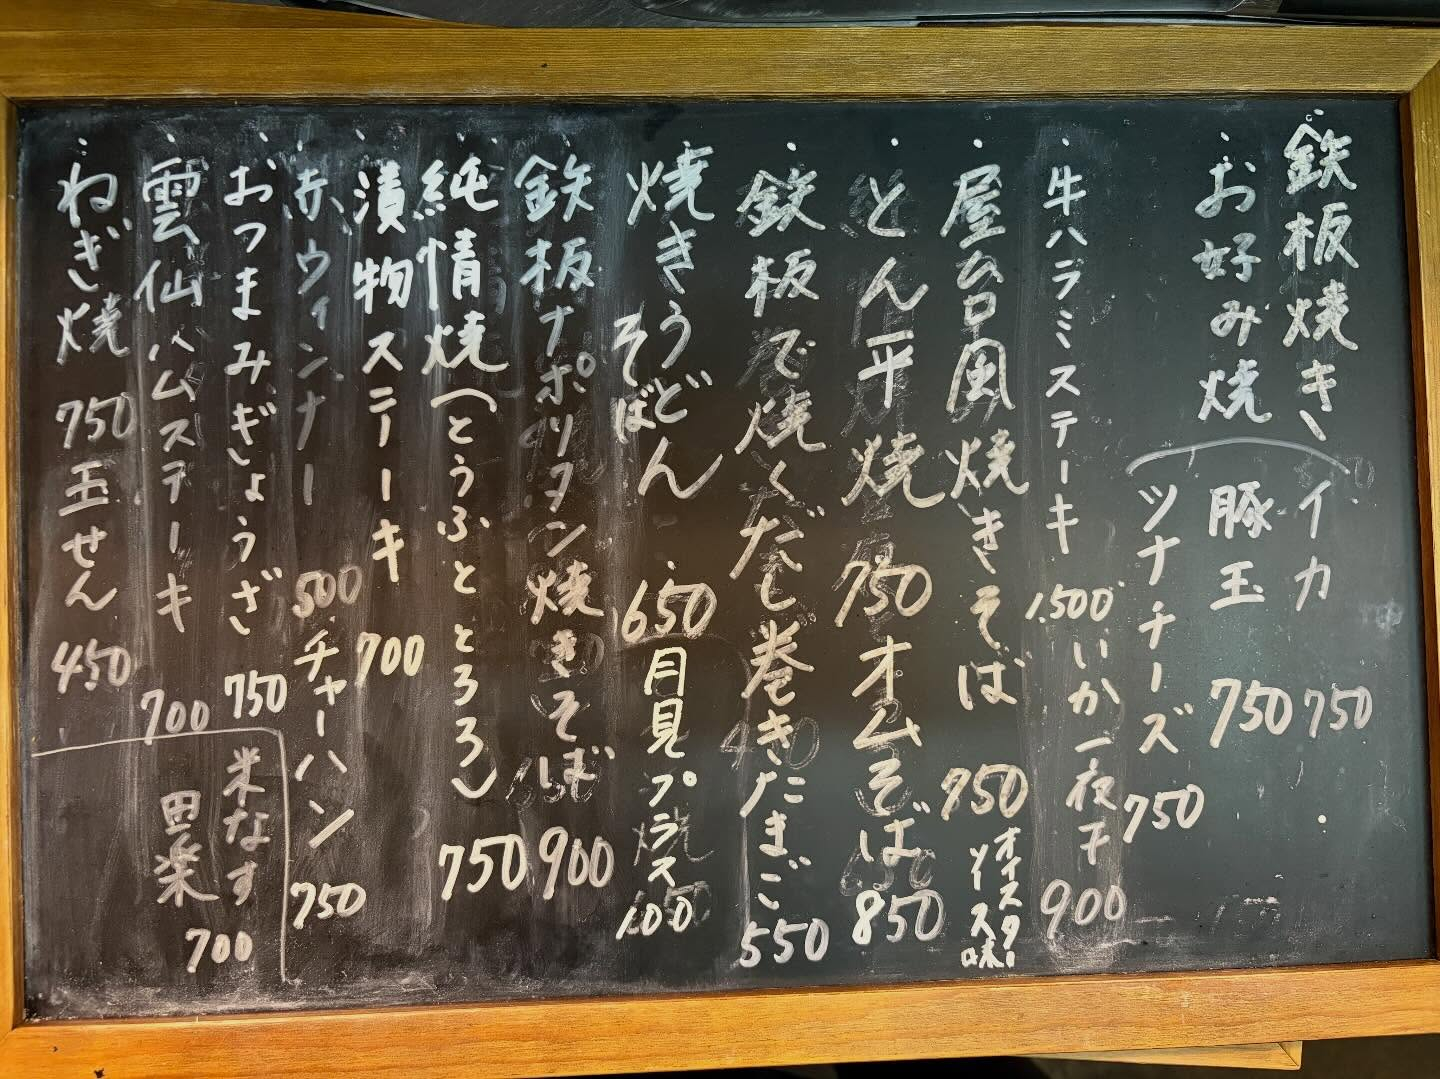 ・鉄板焼き イカ 750
・お好み焼 豚玉 750
ツナチーズ 750
・牛ハラミステーキ 1,500 いか一夜干 900
・屋台風焼きそば 750 オイスターソース味
・とん平焼 750 オムそば 850
・鉄板で焼くだし巻きたまご 550
・焼きうどん そば 650 月見プラス 100
・鉄板ナポリタン焼きそば 900
・純情焼(とうふととろろ) 750
・漬物ステーキ 700
・赤ウィンナー 500 チャーハン 750
・おつまみぎょうざ 750
・雲仙ハムステーキ 700
・ねぎ焼 750 玉せん 450
米なす
田楽 700